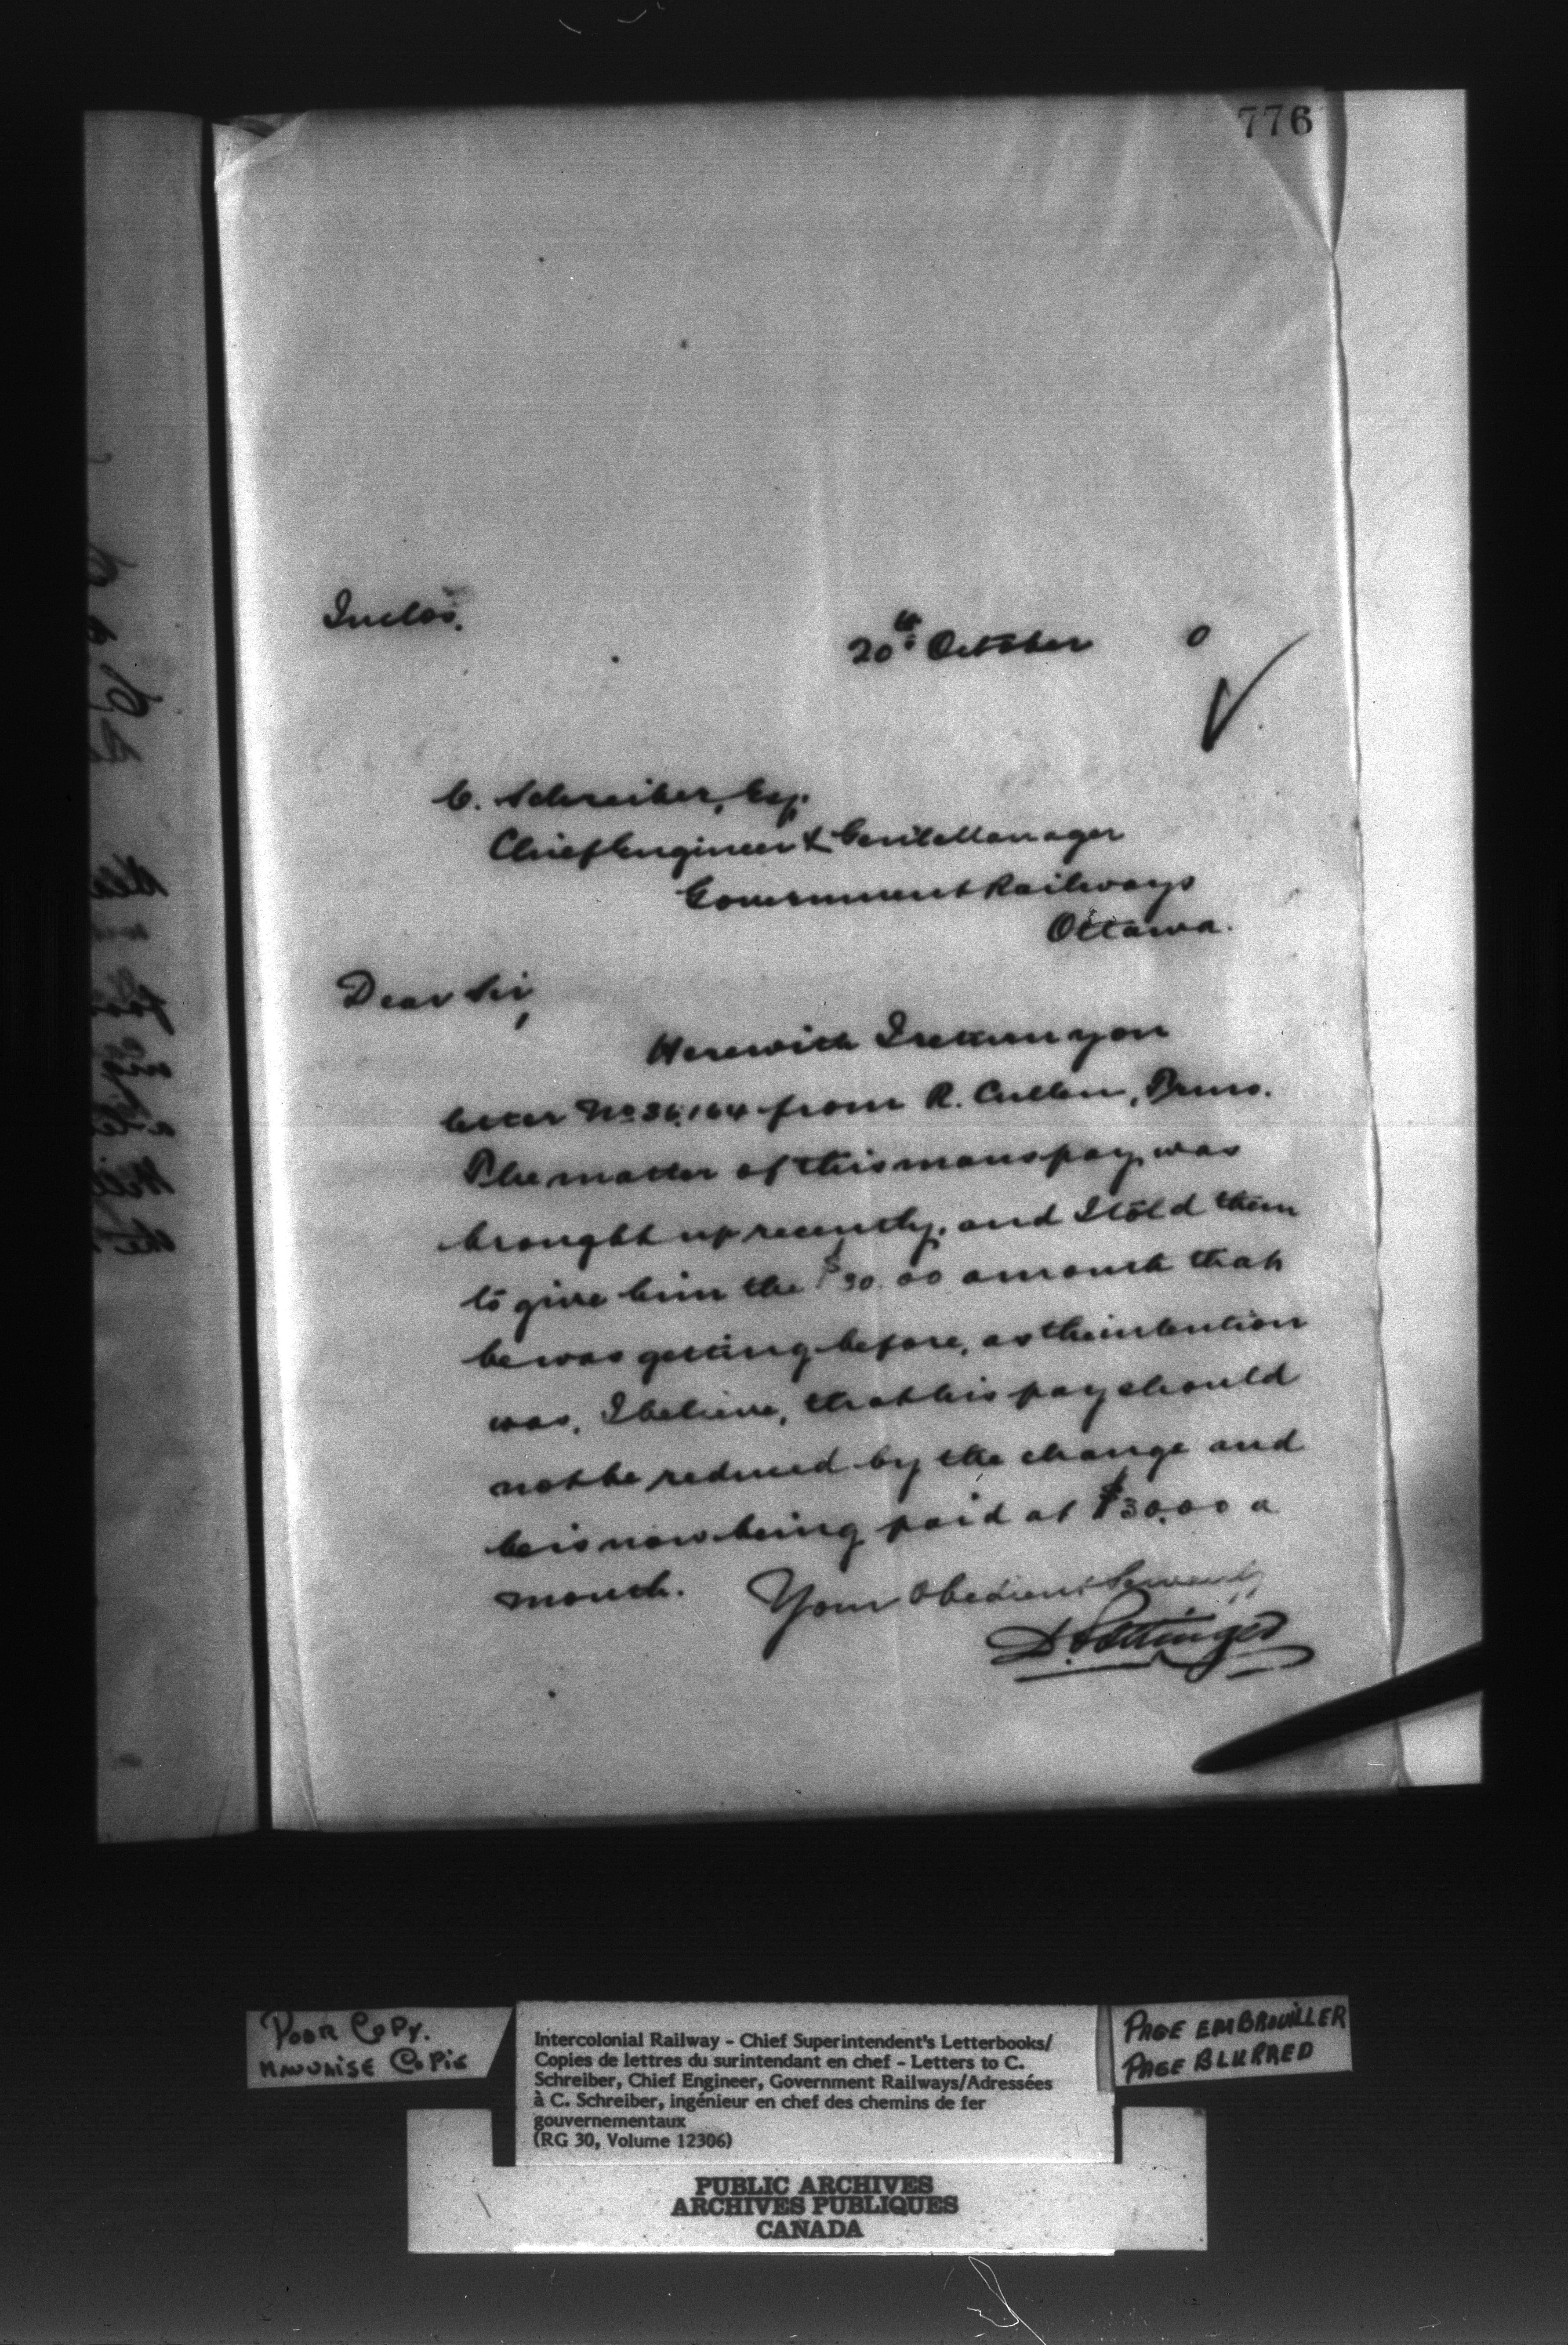 776
Inclos.
20th October 0
C. Schreiber, Esq.
Chief Engineer & Genl Manager
Government Railways
Ottawa.
Dear Sir,
Herewith I return you
letter No 36,164 from R. Cullen,
The matter of this mans pay was
brought up recently, and I told them
to give him the $30.00 a month that
he was getting before, as the intention
was, I believe, that his pay should
not be reduced by the change and
he is now being paid at $30.00 a
month. Your obedient Servant,
D. Pottinger
POOR COPY.
MAUVAISE COPIE
Intercolonial Railway - Chief Superintendent's Letterbooks/
Copies de lettres du surintendant en chef - Letters to C.
Schreiber, Chief Engineer, Government Railways/Adressées
à C. Schreiber, ingénieur en chef des chemins de fer
gouvernementaux
(RG 30, Volume 12306)
PAGE EMBROUILLER
PAGE BLURRED
PUBLIC ARCHIVES
ARCHIVES PUBLIQUES
CANADA